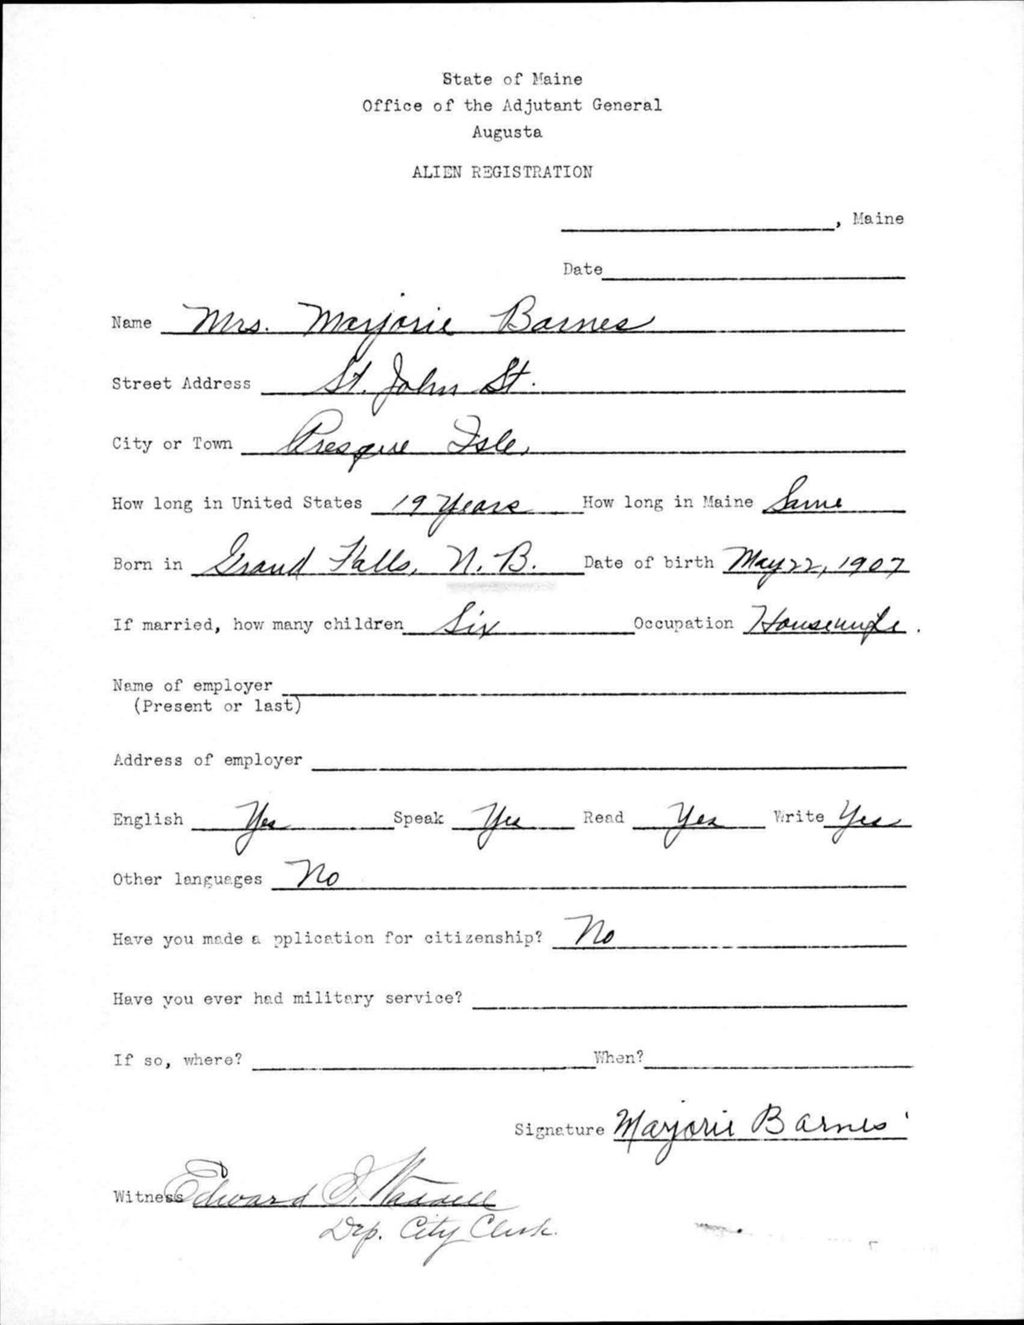 State of Maine
Office of the Adjutant General
Augusta
ALIEN REGISTRATION
, Maine
Date
Name Mrs. Marjorie Barnes
Street Address St. John St.
City or Town Presque Isle,
How long in United States 19 Years How long in Maine Same
Born in Grand Falls, N. B. Date of birth May 22, 1907
If married, how many children Six Occupation Housewife.
Name of employer
(Present or last)
Address of employer
English Yes Speak Yes Read Yes Write Yes
Other languages No
Have you made a pplication for citizenship? No
Have you ever had military service?
If so, where? When?
Signature Marjorie Barnes
Witness Edward
Dep. City Clerk.